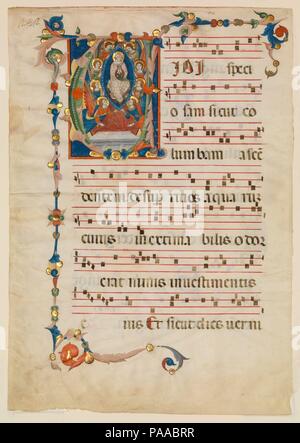 IDI speci
osam sicut co
lumbam ascen
dentem desup riuos aquarum
cuius inextima bilis odor
erat nimis in uestimentis
e ius Et sicut dies uerni
alamy
Image ID: PAABRR
www.alamy.com